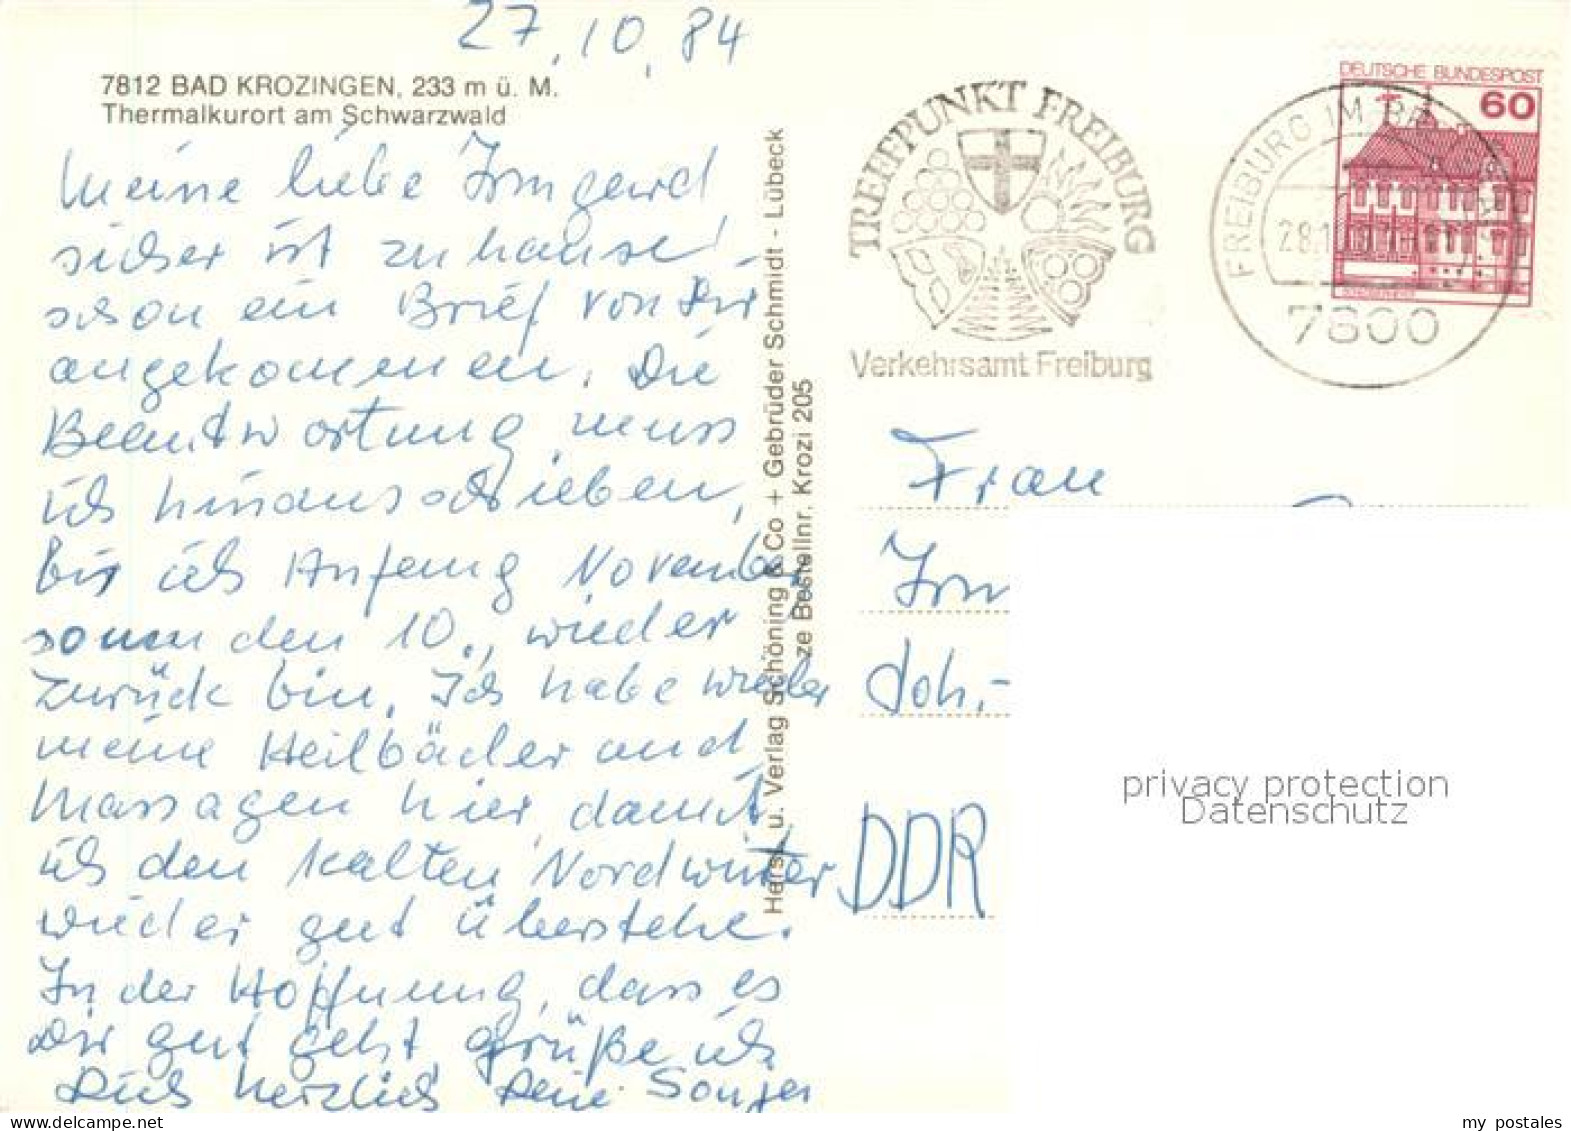 27.10.84
7812 BAD KROZINGEN, 233 m ü. M.
Thermalkurort am Schwarzwald
Meine liebe Irmgard,
sicher ist zu hause
schon ein Brief von Dir
angekommen. Die
Beantwortung muss
ich hinausschieben,
bis ich Anfang November
den 10., wieder
zurück bin. Ich habe wieder
meine Heilbäder und
Massagen hier, damit
ich den kalten Nordwinter
wieder gut überstehe.
In der Hoffnung, dass es
Dir gut geht, grüße ich
Dich herzlich Deine
Herst. u. Verlag Schöning & Co + Gebrüder Schmidt - Lübeck
ze Bestellnr. Krozi 205
TREFFPUNKT FREIBURG
Verkehrsamt Freiburg
DEUTSCHE BUNDESPOST
60
FREIBURG IM BR
7800
Frau
Irm
Joh.-
DDR
privacy protection
Datenschutz
my postales